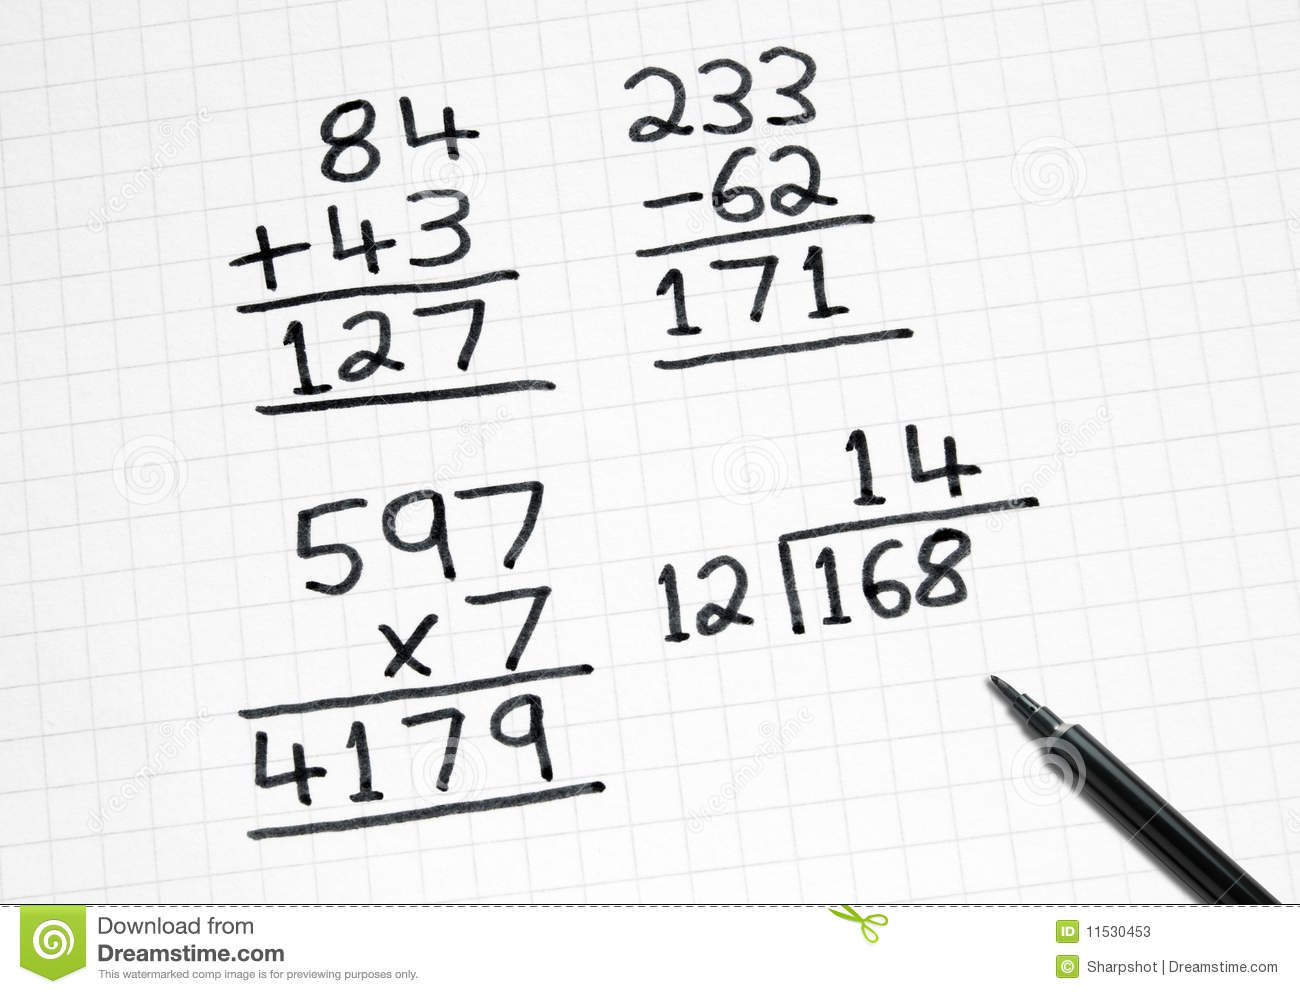 84
+43
127
233
-62
171
597
x 7
4179
14
12 168
Download from
Dreamstime.com
This watermarked comp image is for previewing purposes only.
ID 11530453
© Sharpshot | Dreamstime.com